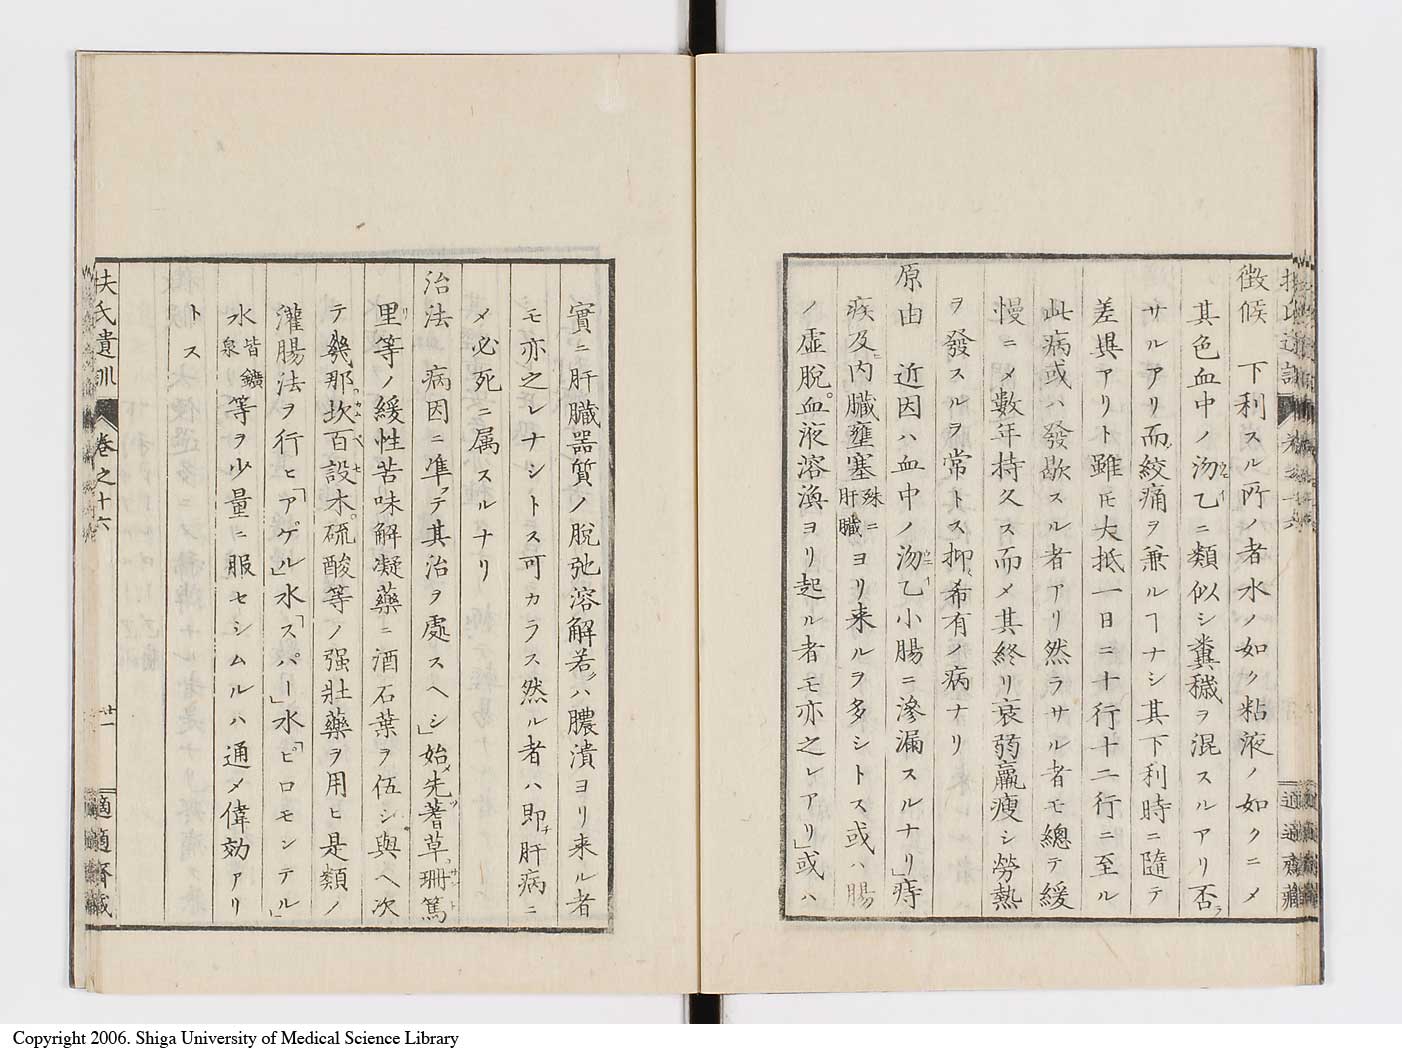 徴候 下利スル所ノ者水ノ如ク粘液ノ如クニメ
其色血中ノ汤乙ニ類似シ糞穢ヲ混スルアリ否ラ
サルアリ而乄絞痛ヲ兼ルヿナシ其下利時ニ隨テ
差異アリト雖𪜈大抵一日ニ十行十二行ニ至ル
此病或ハ發歇スル者アリ然ラサル者モ總テ緩
慢ニ乄數年持久ス而乄其終リ哀弱羸痩シ勞熱
ヲ發スルヲ常トス抑希有ノ病ナリ
原由 近因ハ血中ノ汤乙小腸ニ滲漏スルナリ」痔
疾及ヒ内臓壅塞殊ニ肝臓ヨリ来ルヲ多シトス或ハ腸
ノ虚脱血液溶渙ヨリ起ル者モ亦之レアリ」或ハ
適適齋藏
實ニ肝臓器質ノ脱弛溶解若ハ膿潰ヨリ来ル者
モ亦之レナシトス可カラス然ル者ハ即チ肝病ニ
乄必死ニ属スルナリ
治法 病因ニ準テ其治ヲ處スヘシ」始メ先ツ蓍草、珊篤
里等ノ緩性苦味解凝藥ニ酒石葉ヲ伍シ與ヘ次
テ幾那、坎百設木、硫酸等ノ强壯藥ヲ用ヒ是類ノ
灌腸法ヲ行ヒ「アゲル」水「スパー」水「ピロモンテル」
水皆鑛泉等ヲ少量ニ服セシムルハ通乄偉効アリ
トス
扶氏遺訓 卷之十六
廿一
適適齋藏
Copyright 2006. Shiga University of Medical Science Library